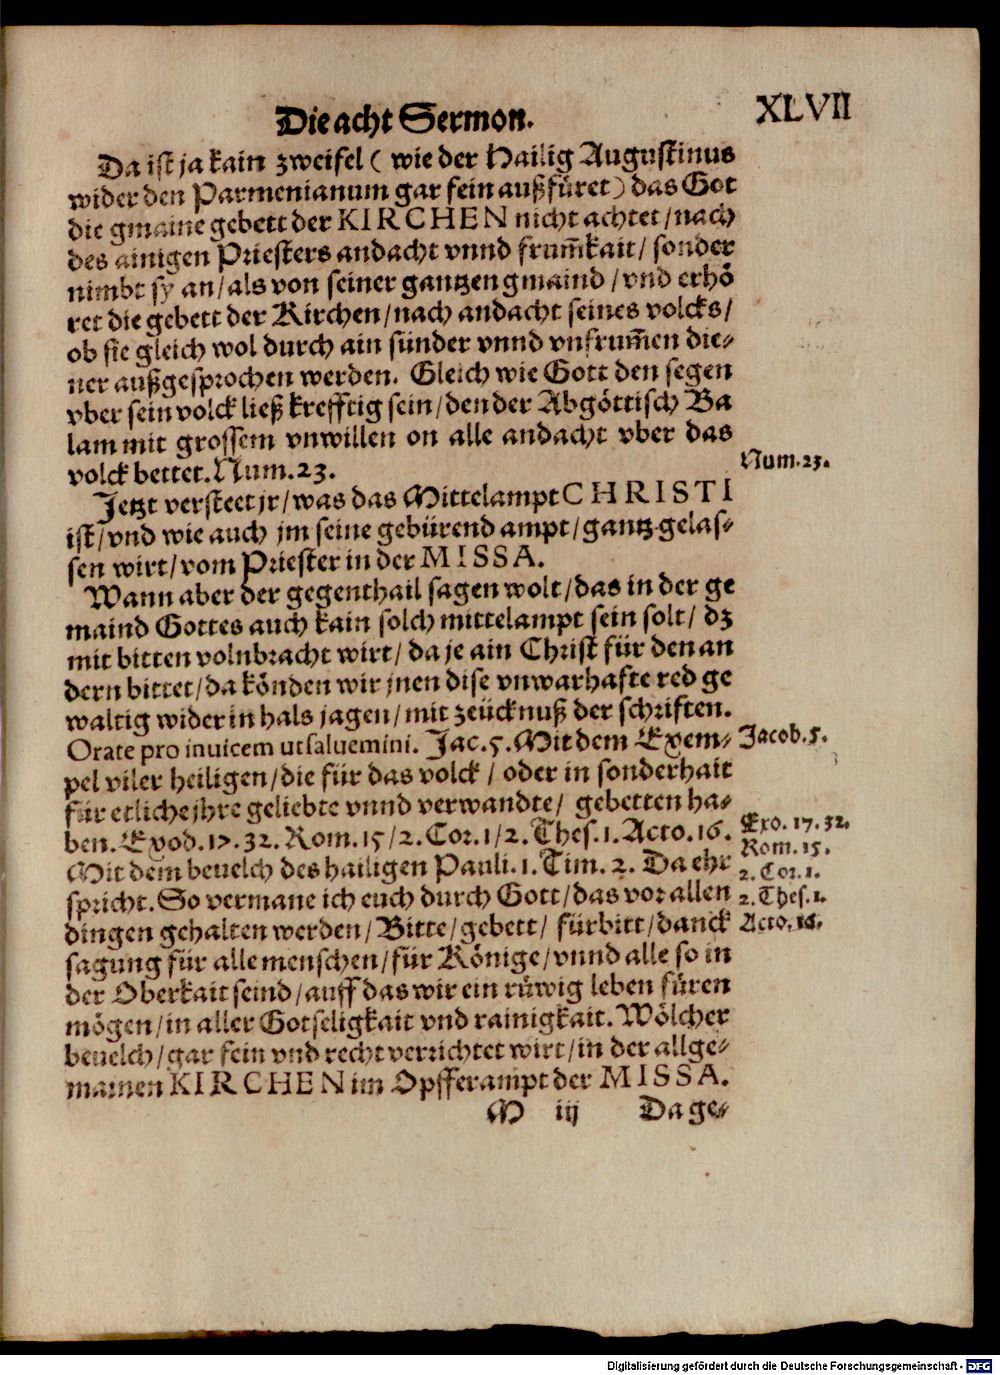 Die acht Sermon.
XLVII
Da ist ja kain zweifel ( wie der Hailig Augustinus
wider den Parmenianum gar fein außfüret ) das Got
die gmaine gebett der KIRCHEN nicht achtet / nach
des ainigen Priesters andacht vnnd frum̃kait / sonder
nimbt sy an / als von seiner gantzen gmaind / vnd erhö
ret die gebett der Kirchen / nach andacht seines volcks /
ob sie gleich wol durch ain sünder vnnd vnfrum̃en die-
ner außgesprochen werden. Gleich wie Gott den segen
vber sein volck ließ krefftig sein / den der Abgöttisch Ba
lam mit grossem vnwillen on alle andacht vber das
volck bettet. Num. 23.
Num. 23.
Jetzt versteet jr / was das Mittelampt CHRISTI
ist / vnd wie auch jm seine gebürend ampt / gantz gelas-
sen wirt / vom Priester in der MISSA.
Wann aber der gegenthail sagen wolt / das in der ge
maind Gottes auch kain solch mittelampt sein solt / dz
mit bitten volnbracht wirt / da je ain Christ für den an
dern bittet / da könden wir jnen dise vnwarhafte red ge
waltig wider in hals jagen / mit zeücknuß der schriften.
Orate pro inuicem ut saluemini. Jac. 5. Mit dem Exem-
Jacob. 5.
pel viler heiligen / die für das volck / oder in sonderhait
für etliche jhre geliebte vnnd verwandte / gebetten ha-
ben. Exod. 17. 32. Rom. 15 / 2. Cor. 1 / 2. Thes. 1. Acto. 16.
Exo. 17. 32.
Rom. 15.
2. Cor. 1.
2. Thes. 1.
Acto. 16.
Mit dem beuelch des hailigen Pauli. 1. Tim. 2. Da ehr
spricht. So vermane ich euch durch Gott / das vor allen
dingen gehalten werden / Bitte / gebett / fürbitt / danck
sagung für alle menschen / für Könige / vnnd alle so in
der Oberkait seind / auff das wir ein rüwig leben füren
mögen / in aller Gotseligkait vnd rainigkait. Wölcher
beuelch / gar fein vnd recht verrichtet wirt / in der allge-
mainen KIRCHEN im Opfferampt der MISSA.
M iij Da ge-
Digitalisierung gefördert durch die Deutsche Forschungsgemeinschaft - DFG